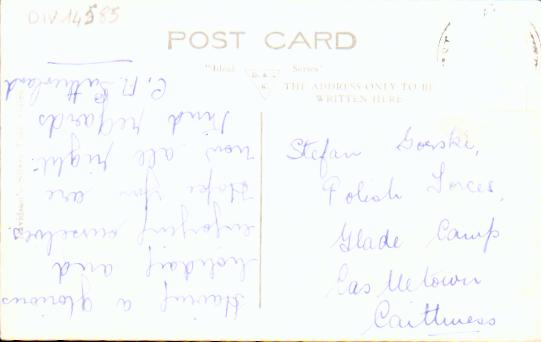 DIV 14585
POST CARD
"Ideal Series"
THE ADDRESS ONLY TO BE
WRITTEN HERE
Having a glorious
holiday and
enjoying ourselves.
Hope you are
now all right.
Kind regards
C. M. Sutherland
Stefan Gorski,
Polish Forces,
Glade Camp
Castletown
Caithness